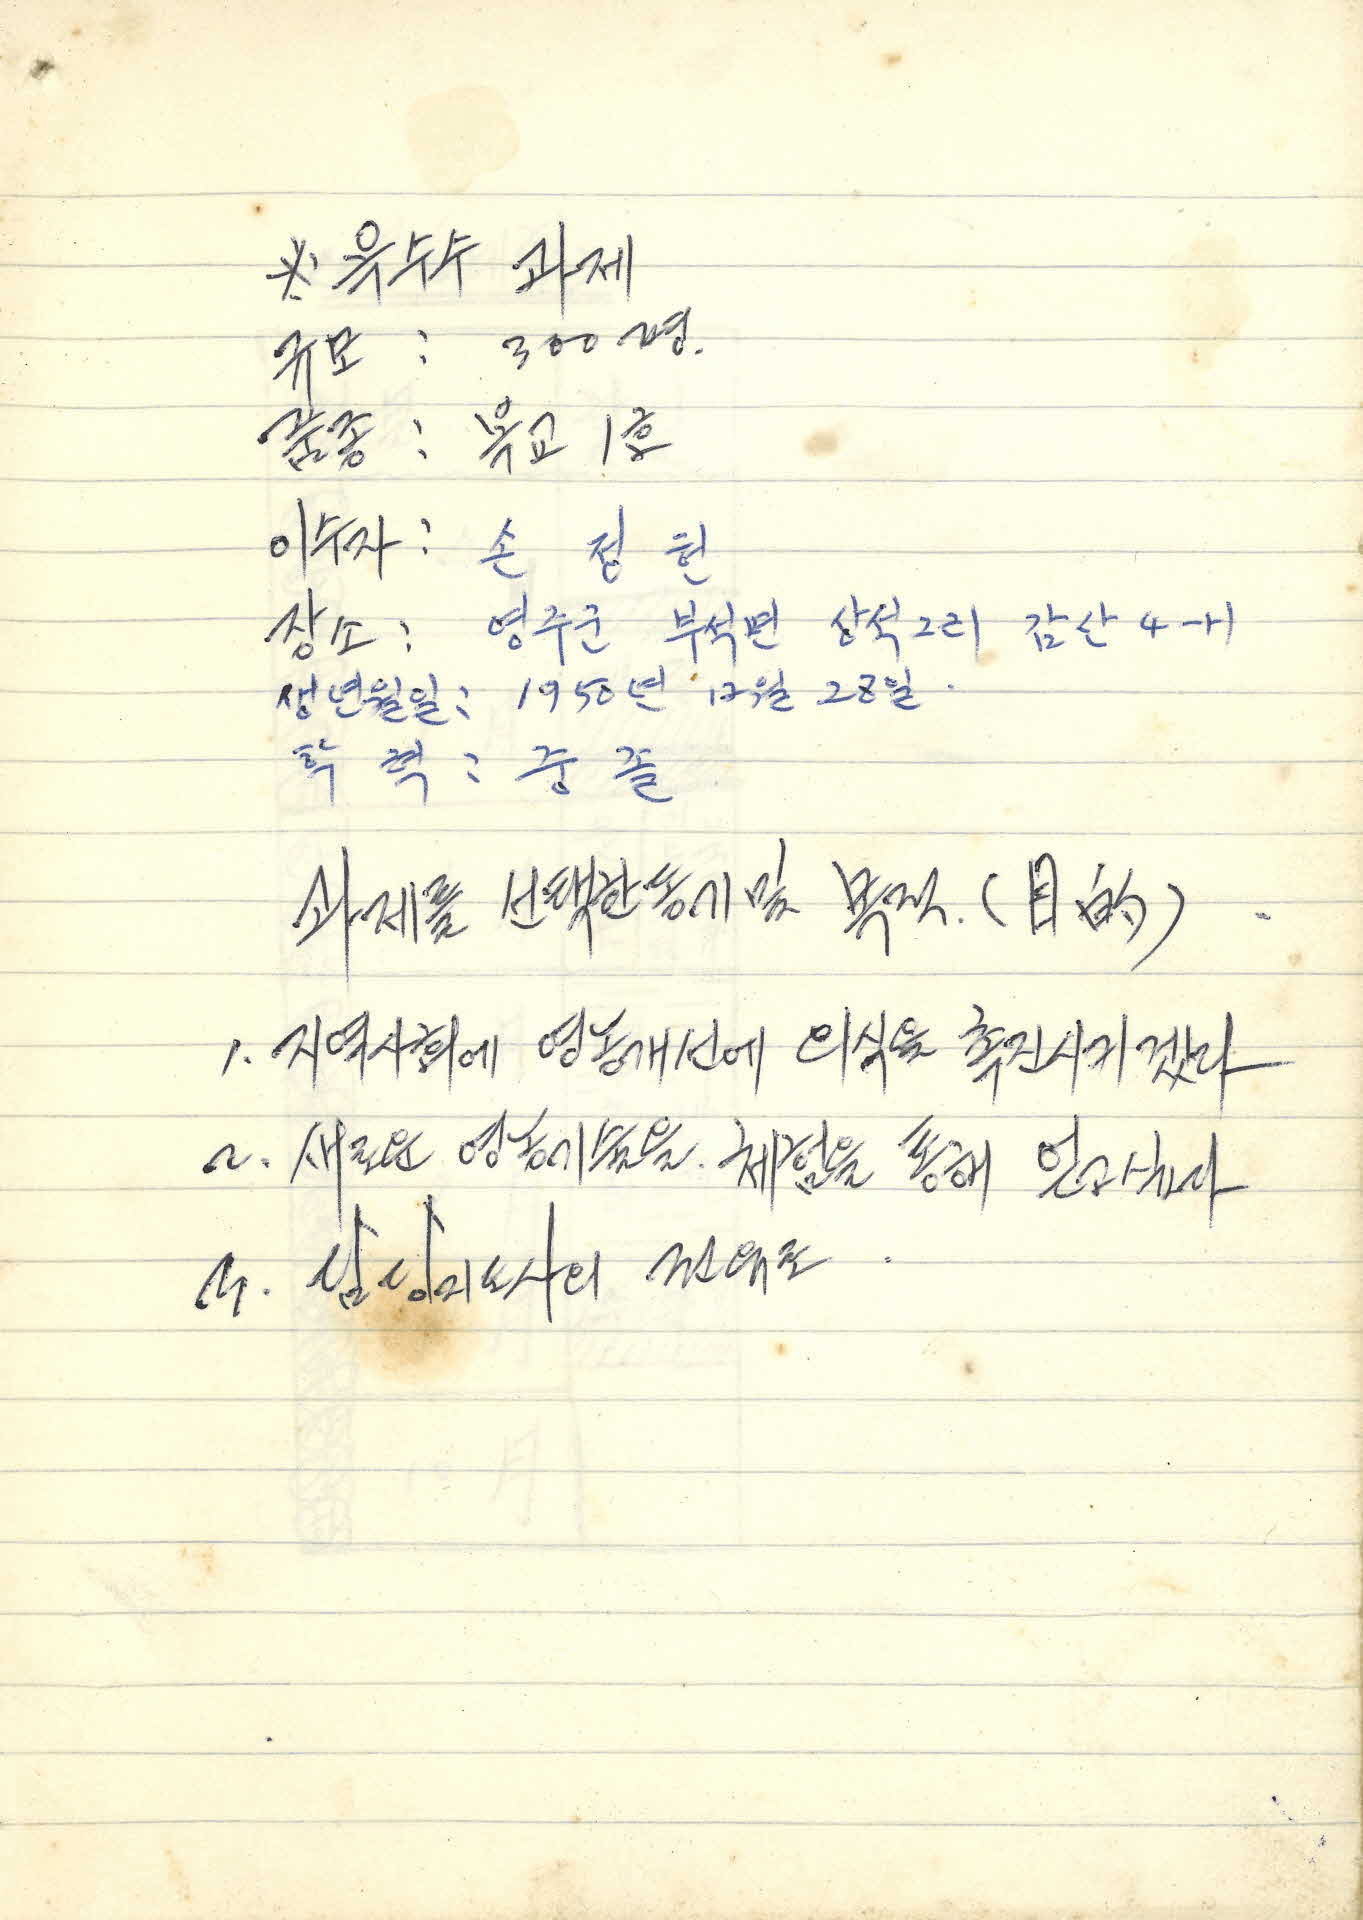 ※ 옥수수 과제
규모 : 300평.
품종 : 복교 1호
이수자 : 손 정 헌
장소 : 영주군 부석면 상석2리 감산 4-1
생년월일 : 1950년 12월 28일.
학 력 : 중 졸
과제를 선택한 동기 및 목적. (目的)
1. 지역사회에 영농개선에 의식을 촉진시키겠다
2. 새로운 영농기술을 체험을 통해
3. 지도사의